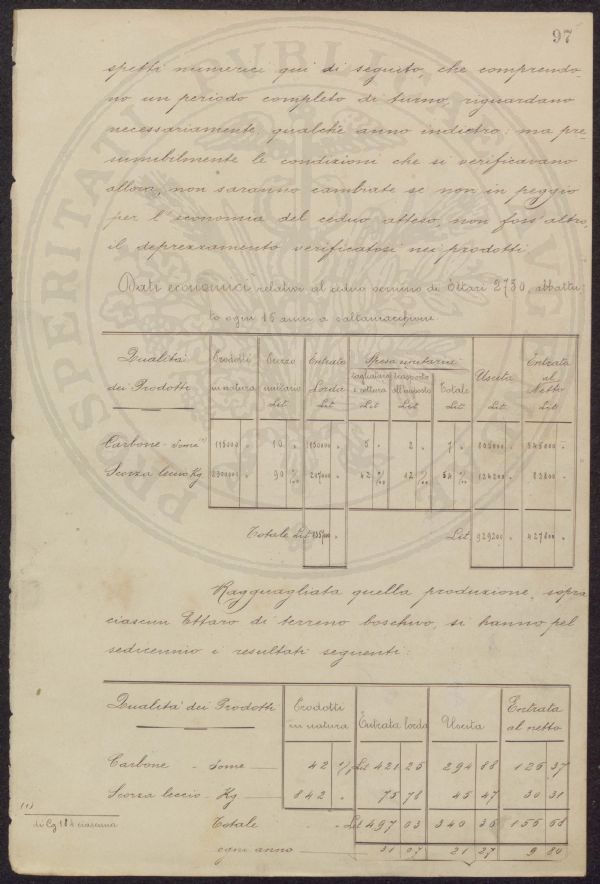 97
spetti numerici qui di seguito, che comprendo-
no un periodo completo di turno, riguardano
necessariamente, qualche anno indietro: ma pre-
sumibilmente le condizioni che si verificavano
allora, non saranno cambiate se non in peggio
per l'economia del ceduo atteso, non foss'altro,
il deprezzamento verificatosi nei prodotti.
Dati economici relativi al ceduo di Ettari 2730, abbattu
to ogni 16 anni a
Qualità dei Prodotti | Prodotti in natura | Prezzo unitario Lit | Entrata Lorda Lit | Spesa unitaria | tagliatura e cottura Lit | trasporto all'imposto Lit | Totale Lit | Uscita Lit | Entrata al Netto Lit
Carbone - Some (1) | 115000 " | 10 " | 1150000 " | 5 " | 2 " | 7 " | 805000 " | 345000 "
Scorza leccio Kg | 2300000 " | 90 %00 | 207000 " | 42 %00 | 12 %00 | 54 %00 | 124200 " | 82800 "
Totale Lit " | Lit. 929200 " | 427800 "
Ragguagliata quella produzione, sopra
ciascun Ettaro di terreno boschivo, si hanno pel
sedicennio i resultati seguenti:
Qualità dei Prodotti | Prodotti in natura | Entrata lorda | Uscita | Entrata al netto
Carbone - Some | 42 | Lit 421 25 | 294 88 | 126 37
Scorza leccio - Kg | 842 " | 75 78 | 45 47 | 30 31
Totale " Lit 497 03 | 340 35 | 156 68
ogni anno 31 07 | 21 27 | 9 80
(1)
di Kg 184 ciascuna
PVBLI
PERITATI